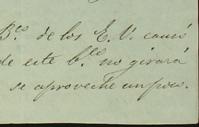 B.co de los E. U. causó
de este b.co no girará
se aproveche un poco.